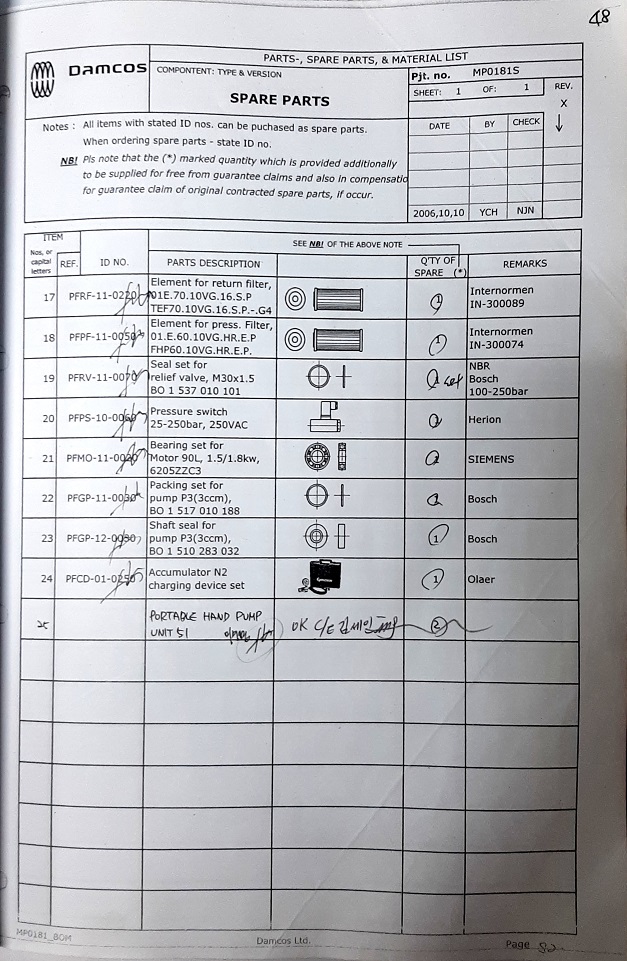 48
Damcos
PARTS-, SPARE PARTS, & MATERIAL LIST
COMPONTENT: TYPE & VERSION
SPARE PARTS
Pjt. no. MP0181S
SHEET: 1 OF: 1
REV.
X
DATE BY CHECK
2006,10,10 YCH NJN
Notes : All items with stated ID nos. can be puchased as spare parts.
When ordering spare parts - state ID no.
NB! Pls note that the (*) marked quantity which is provided additionally
to be supplied for free from guarantee claims and also in compensatio
for guarantee claim of original contracted spare parts, if occur.
ITEM
Nos, or
capital
letters
REF.
ID NO.
PARTS DESCRIPTION
SEE NB! OF THE ABOVE NOTE
Q'TY OF
SPARE (*)
REMARKS
17 PFRF-11-0220
Element for return filter,
01E.70.10VG.16.S.P
TEF70.10VG.16.S.P.-.G4
1
Internormen
IN-300089
18 PFPF-11-0050
Element for press. Filter,
01.E.60.10VG.HR.E.P.
FHP60.10VG.HR.E.P.
1
Internormen
IN-300074
19 PFRV-11-0070
Seal set for
relief valve, M30x1.5
BO 1 537 010 101
set
NBR
Bosch
100-250bar
20 PFPS-10-0060
Pressure switch
25-250bar, 250VAC
Herion
21 PFMO-11-0020
Bearing set for
Motor 90L, 1.5/1.8kw,
6205ZZC3
SIEMENS
22 PFGP-11-0030
Packing set for
pump P3(3ccm),
BO 1 517 010 188
Bosch
23 PFGP-12-0030
Shaft seal for
pump P3(3ccm),
BO 1 510 283 032
1
Bosch
24 PFCD-01-0250
Accumulator N2
charging device set
1
Olaer
25
PORTABLE HAND PUMP
UNIT 51
OK C/E 김세일
2
MP0181_BOM
Damcos Ltd.
Page 82